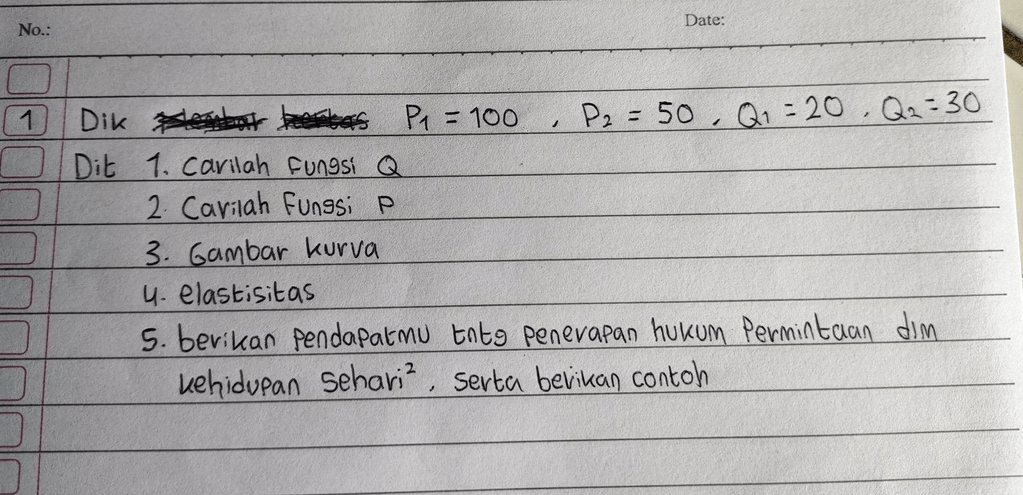 No.: Date:
1 Dik P1 = 100 , P2 = 50 , Q1 = 20 , Q2 = 30
Dit 1. Carilah Fungsi Q
2. Carilah Fungsi P
3. Gambar kurva
4. elastisitas
5. berikan pendapatmu tntg penerapan hukum Permintaan dlm
kehidupan sehari² , serta berikan contoh